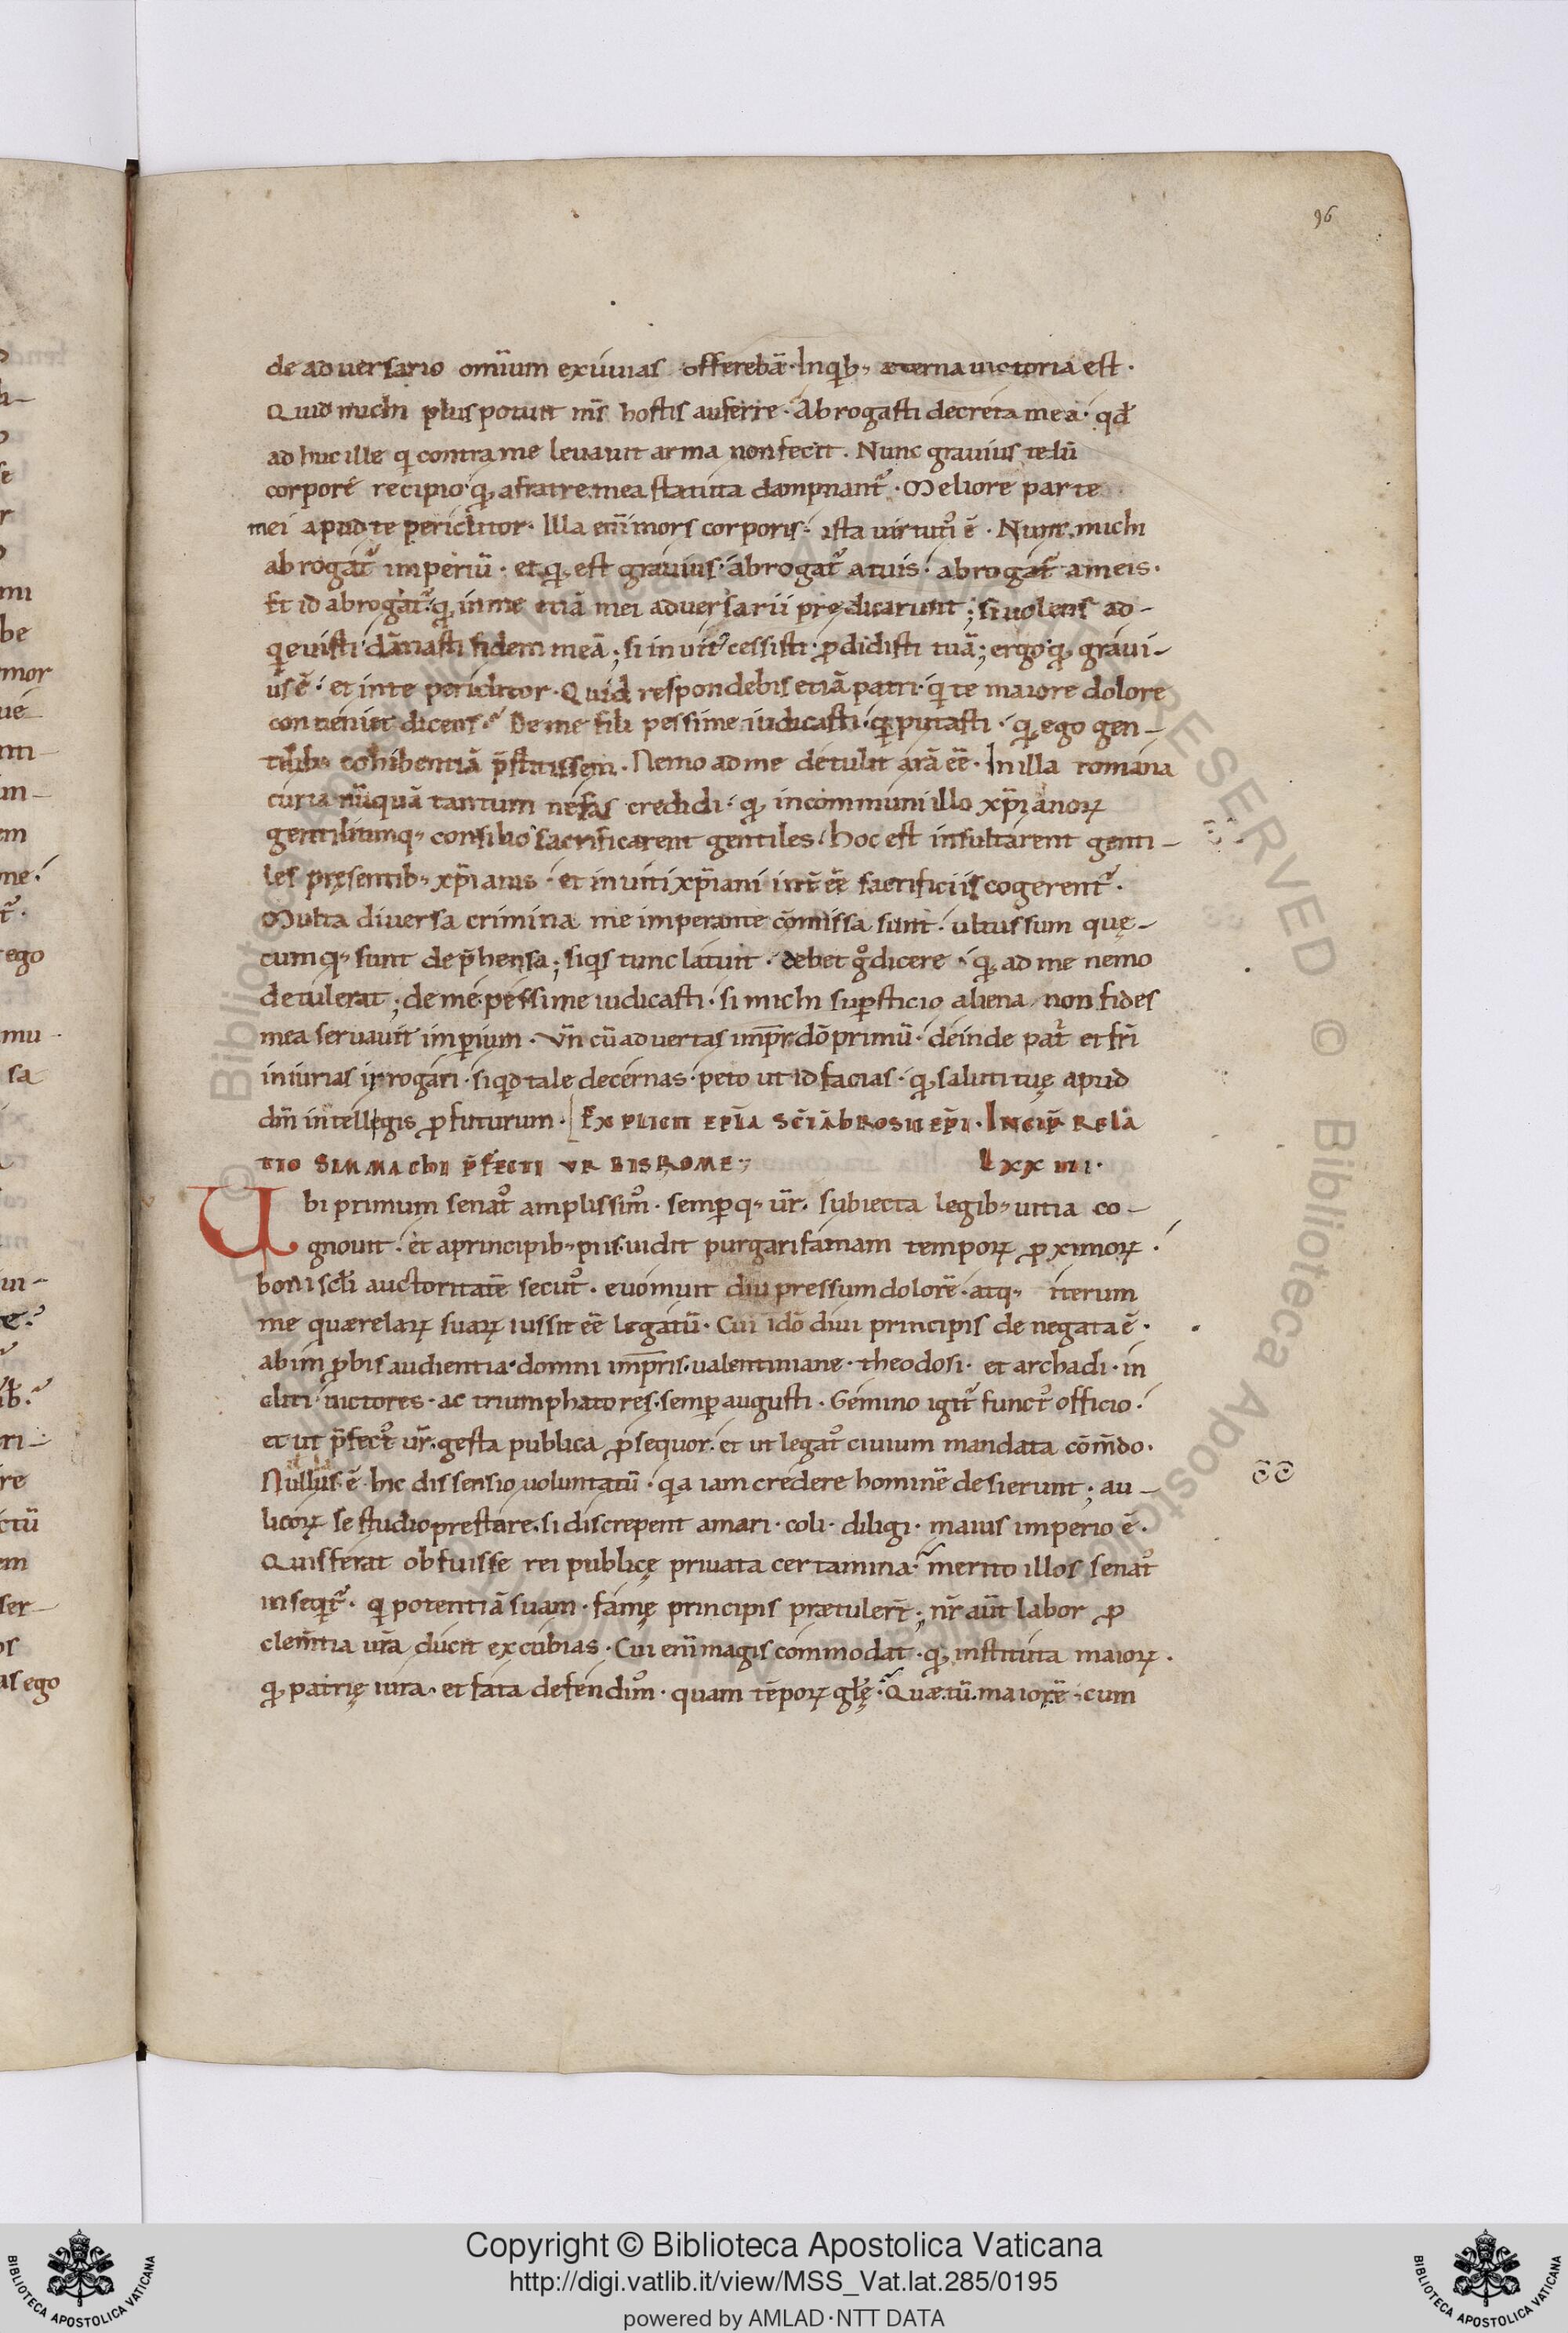 96
de adversario omīum exuuias offerebā· Inqͥb; æterna uictoria est·
Quid michi plus potuit m̄s hostis auferre· Abrogasti decreta mea· qđ
ad huc ille qͥ contra me levavit arma non fecit· Nunc gravius telū
corpore recipio· qđ a fratre mea statuta dampnant᷑· Meliore parte
mei apud te periclitor· Illa enī mors corporis· ista virtutꝰ ē· Nunc michi
abrogat᷑ imperiū· et qđ est gravius· abrogat᷑ a tuis· abrogat᷑ a meis·
Et id abrogat᷑· qđ in me etiā mei adversarii prędicarunt; si volens ad-
qͥevisti dānasti fidem meā; si invitꝰ cessisti· ꝓdidisti tuā; ergo qđ gravi-
us ē· et in te periclitor· Quid respondebis etiā patri· qͥ te maiore dolore
conveniet dicens· De me fili pessime iudicasti· qͥ putasti· qđ ego gen-
tilib; cohibentiā p̄stitissem· Nemo ad me detulit arā eē· In illa romana
curia nūquā tantum nefas credidi· qđ in communi illo xp̄ianoꝝ
gentiliumq; consilio sacrificarent gentiles· hoc est insultarent genti-
les pręsentib; xp̄ianis· et inviti xp̄iani int̄ eē sacrificiis cogerent᷑·
Multa diversa crimina me imperante cōmissa sunt· ultus sum quę-
cumq; sunt dep̄hensa; siqͥs tunc latuit· debet gͦ dicere· qđ ad me nemo
detulerat; de me pessime iudicasti· si michi suꝑsticio aliena non fides
mea servavit imꝑium· Vn̄ cū advertas imp̄r dō primū· deinde pat̄ et fr̄i
iniurias irrogari· siqͥd tale decernas· peto ut id facias· qđ saluti tuę apud
dm̄ intellegis ꝓfuturum· Explicit epl̄a sc̄i ābrosii ep̄i· Incip̄ rela
tio Simmachi p̄fecti urbis Rome; Lxxiiii·
Ubi primum senatꝰ amplissimꝰ· semꝑq; ūr· subiecta legib; uitia co-
gnouit· et a principib; piis· uidit purgari famam temporꝝ ꝓximoꝝ·
boni sc̄li auctoritatē secutꝰ· evomuit diu pressum dolorē· atq; iterum
me quærelaꝝ suaꝝ iussit eē legatū· Cui idō divi principis denegata ē·
ab imꝓbis audientia· domni imp̄ris· ualentiniane· theodosi· et archadi· in
cliti uictores· ac triumphatores· semꝑ augusti· Gemino igit᷑ functꝰ officio·
et ut p̄fectꝰ ūr· gesta publica ꝓsequor· et ut legatꝰ civium mandata cōm̄do·
Nullus ē hic dissensio voluntatū· qͥa iam credere hominē desierunt; au-
licoꝝ se studio prestare· si discrepent amari· coli· diligi· maius imperio ē·
Quis ferat obfuisse rei publicę privata certamina· merito illos senatꝰ
inseqͥt᷑· qͥ potentiā suam· famę principis prætulert̄; nr̄ aūt labor ꝓ
clem̄tia ur̄a ducit excubias· Cui enī magis commodat· qđ instituta maioꝝ·
qđ patrię iura· et fata defendimꝰ· quam tēporꝝ gl̄ę· Quæ tū maiorē· cum
Copyright © Biblioteca Apostolica Vaticana
http://digi.vatlib.it/view/MSS_Vat.lat.285/0195
powered by AMLAD·NTT DATA
BIBLIOTECA APOSTOLICA VATICANA
BIBLIOTECA APOSTOLICA VATICANA